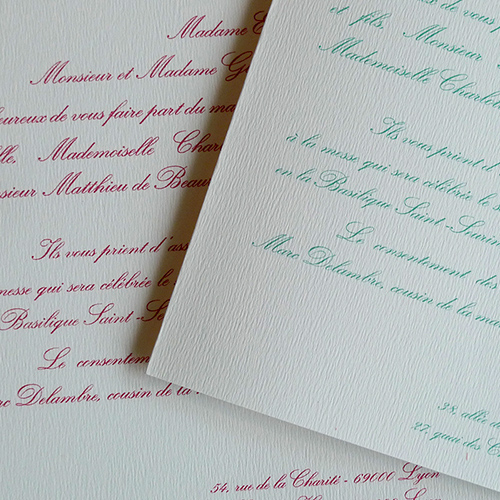 Madame
Monsieur et Madame
de vous faire part du
Mademoiselle
Matthieu de
Ils vous prient d'
messe qui sera célébrée le
Basilique Saint-
Le consentement
Delambre, cousin de la
54, rue de la Charité - 69000 Lyon
de vous
et fils, Monsieur
Mademoiselle
Ils vous prient d'
à la messe qui sera célébrée le
en la Basilique Saint-
Le consentement des
Marc Delambre, cousin de la
28,
27, quai des